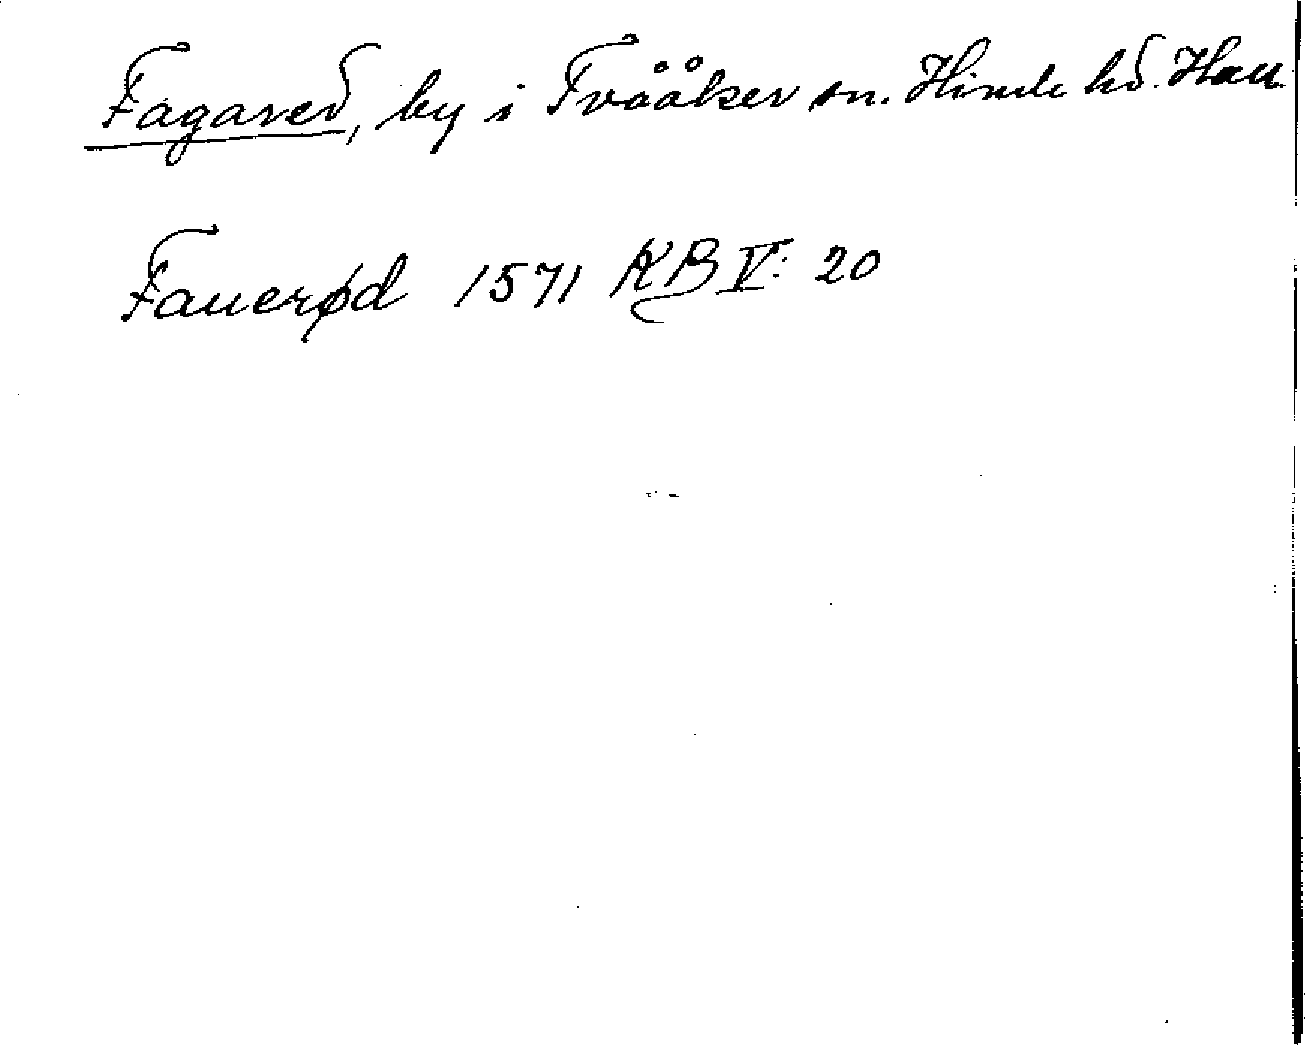 Fagared, by i Tvååker sn. Himle hd. Hall.
Fauerød 1571 KB V: 20